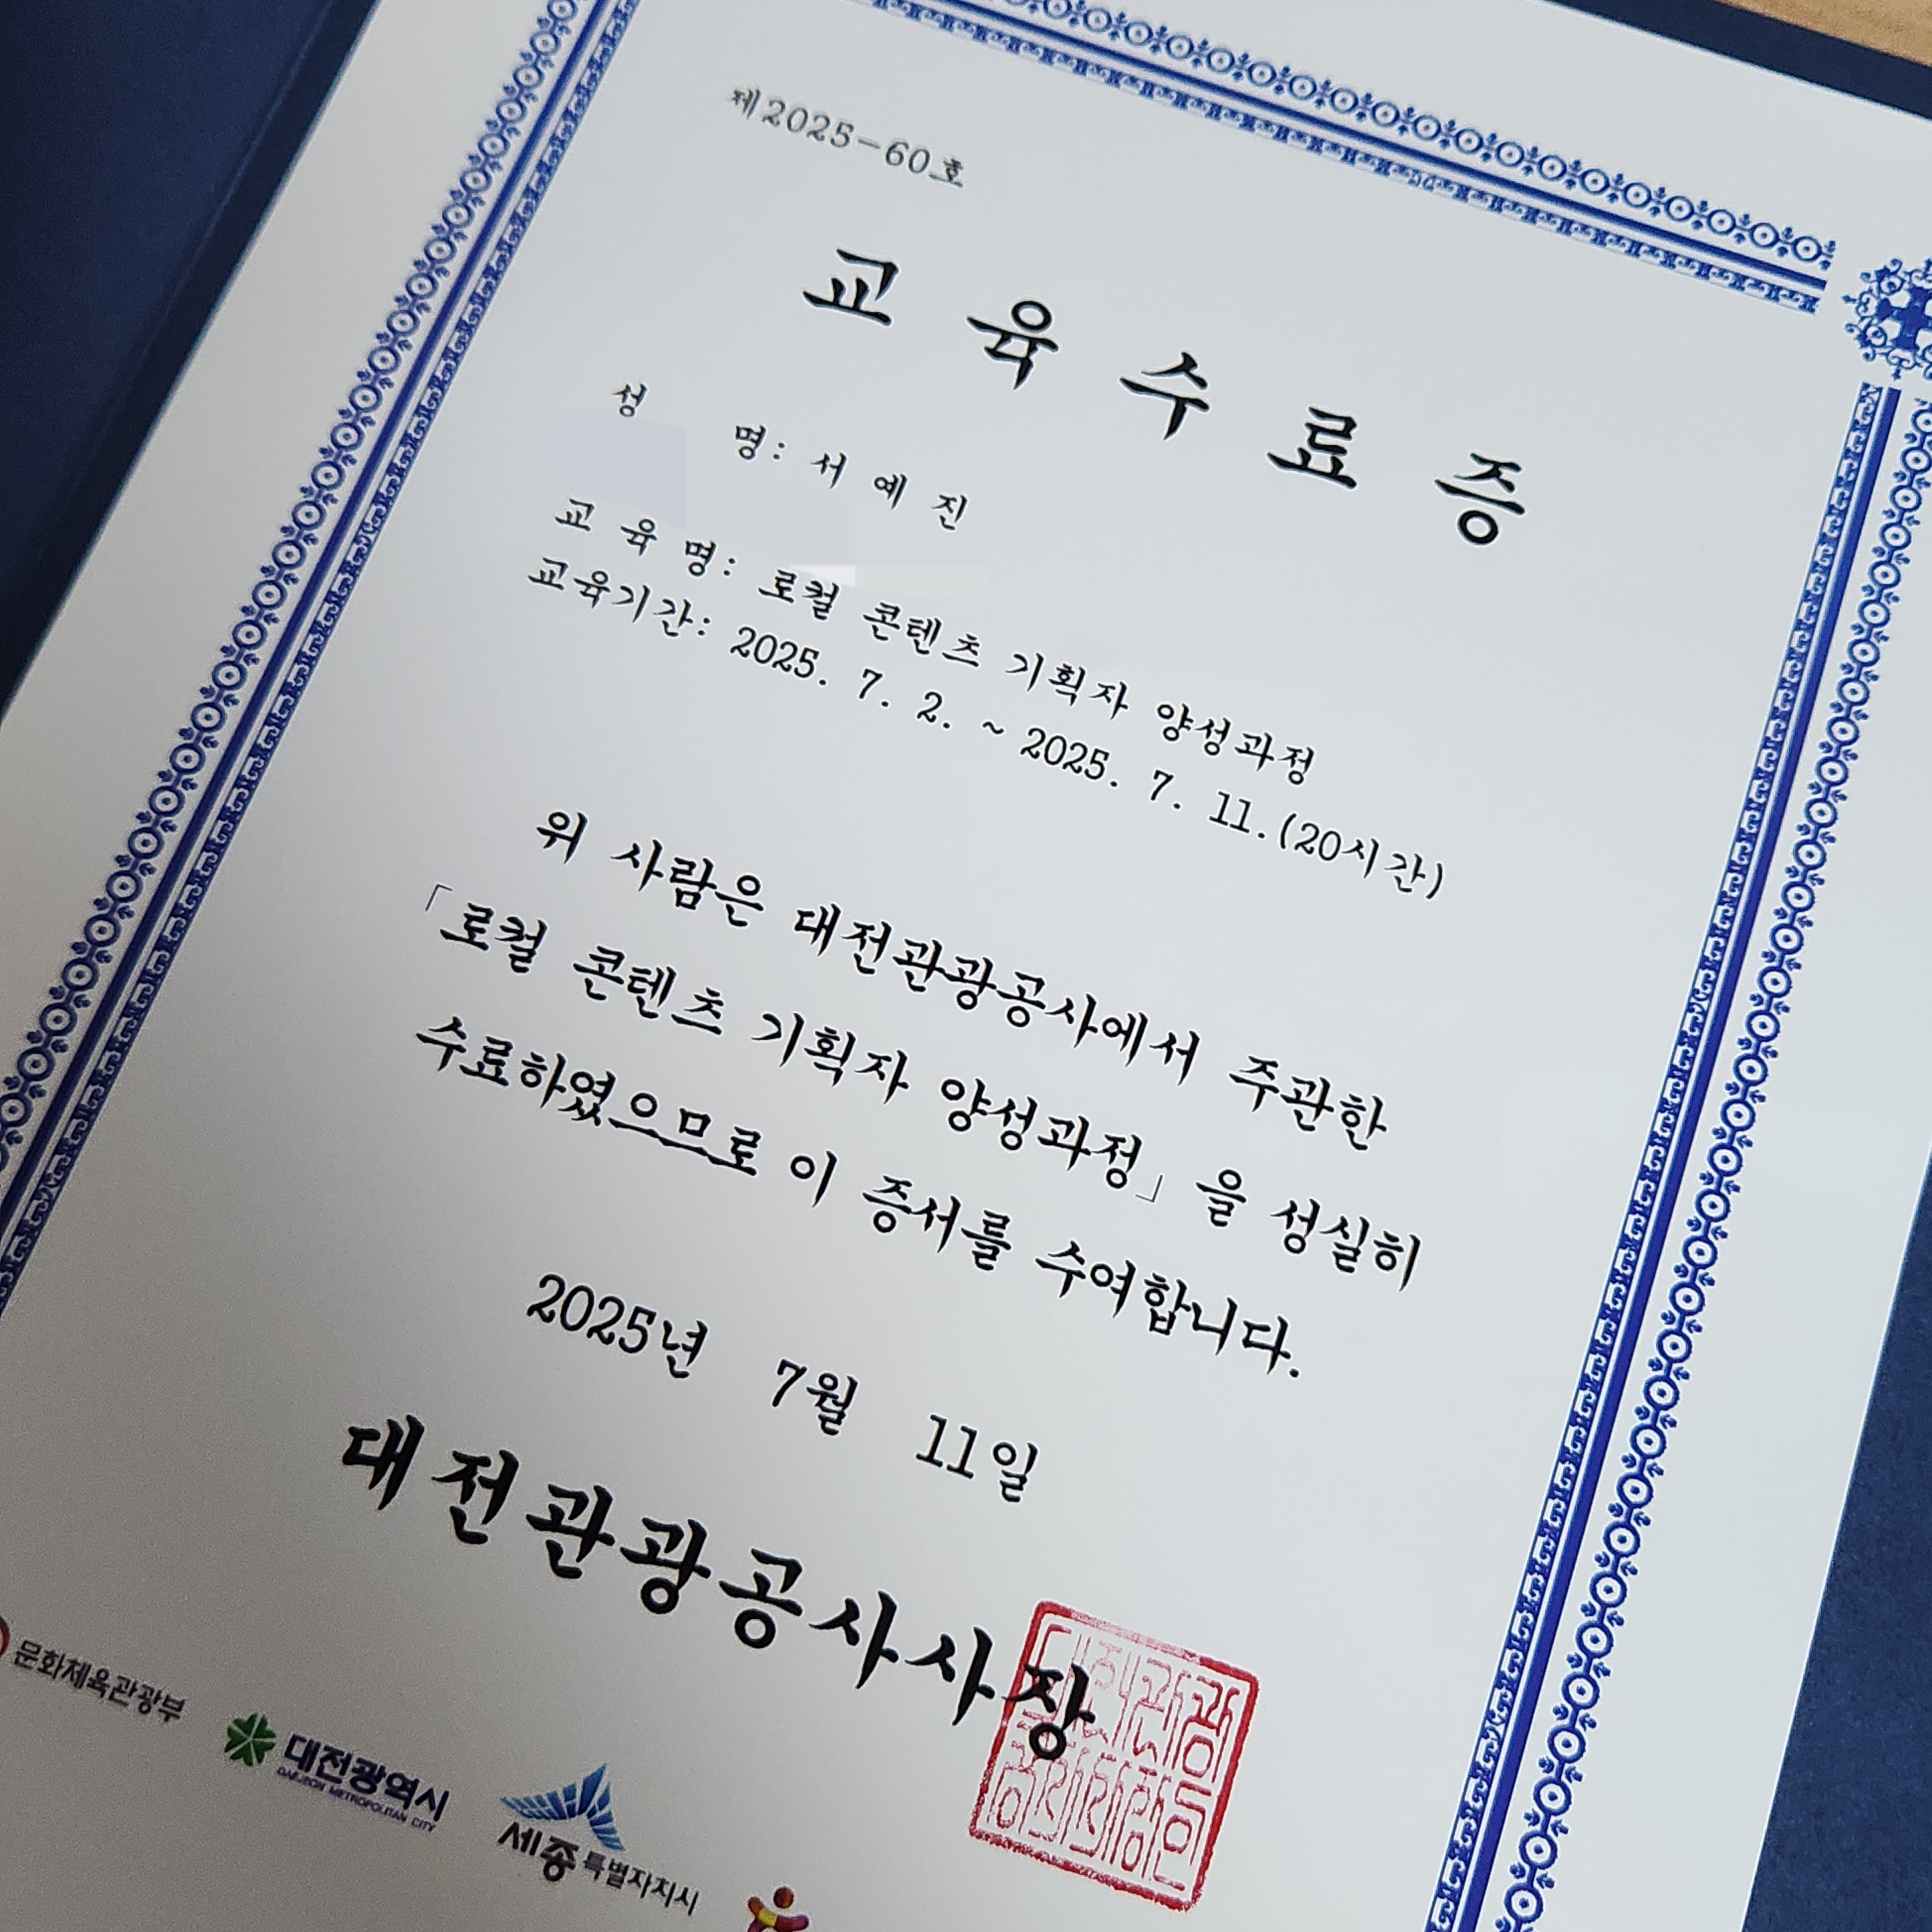 제2025-60호
교 육 수 료 증
성 명: 서 예 진
교 육 명: 로컬 콘텐츠 기획자 양성과정
교육기간: 2025. 7. 2. ~ 2025. 7. 11.(20시간)
위 사람은 대전관광공사에서 주관한
「로컬 콘텐츠 기획자 양성과정」을 성실히
수료하였으므로 이 증서를 수여합니다.
2025년 7월 11일
대전관광공사사장
문화체육관광부
대전광역시
DAEJEON METROPOLITAN CITY
세종특별자치시